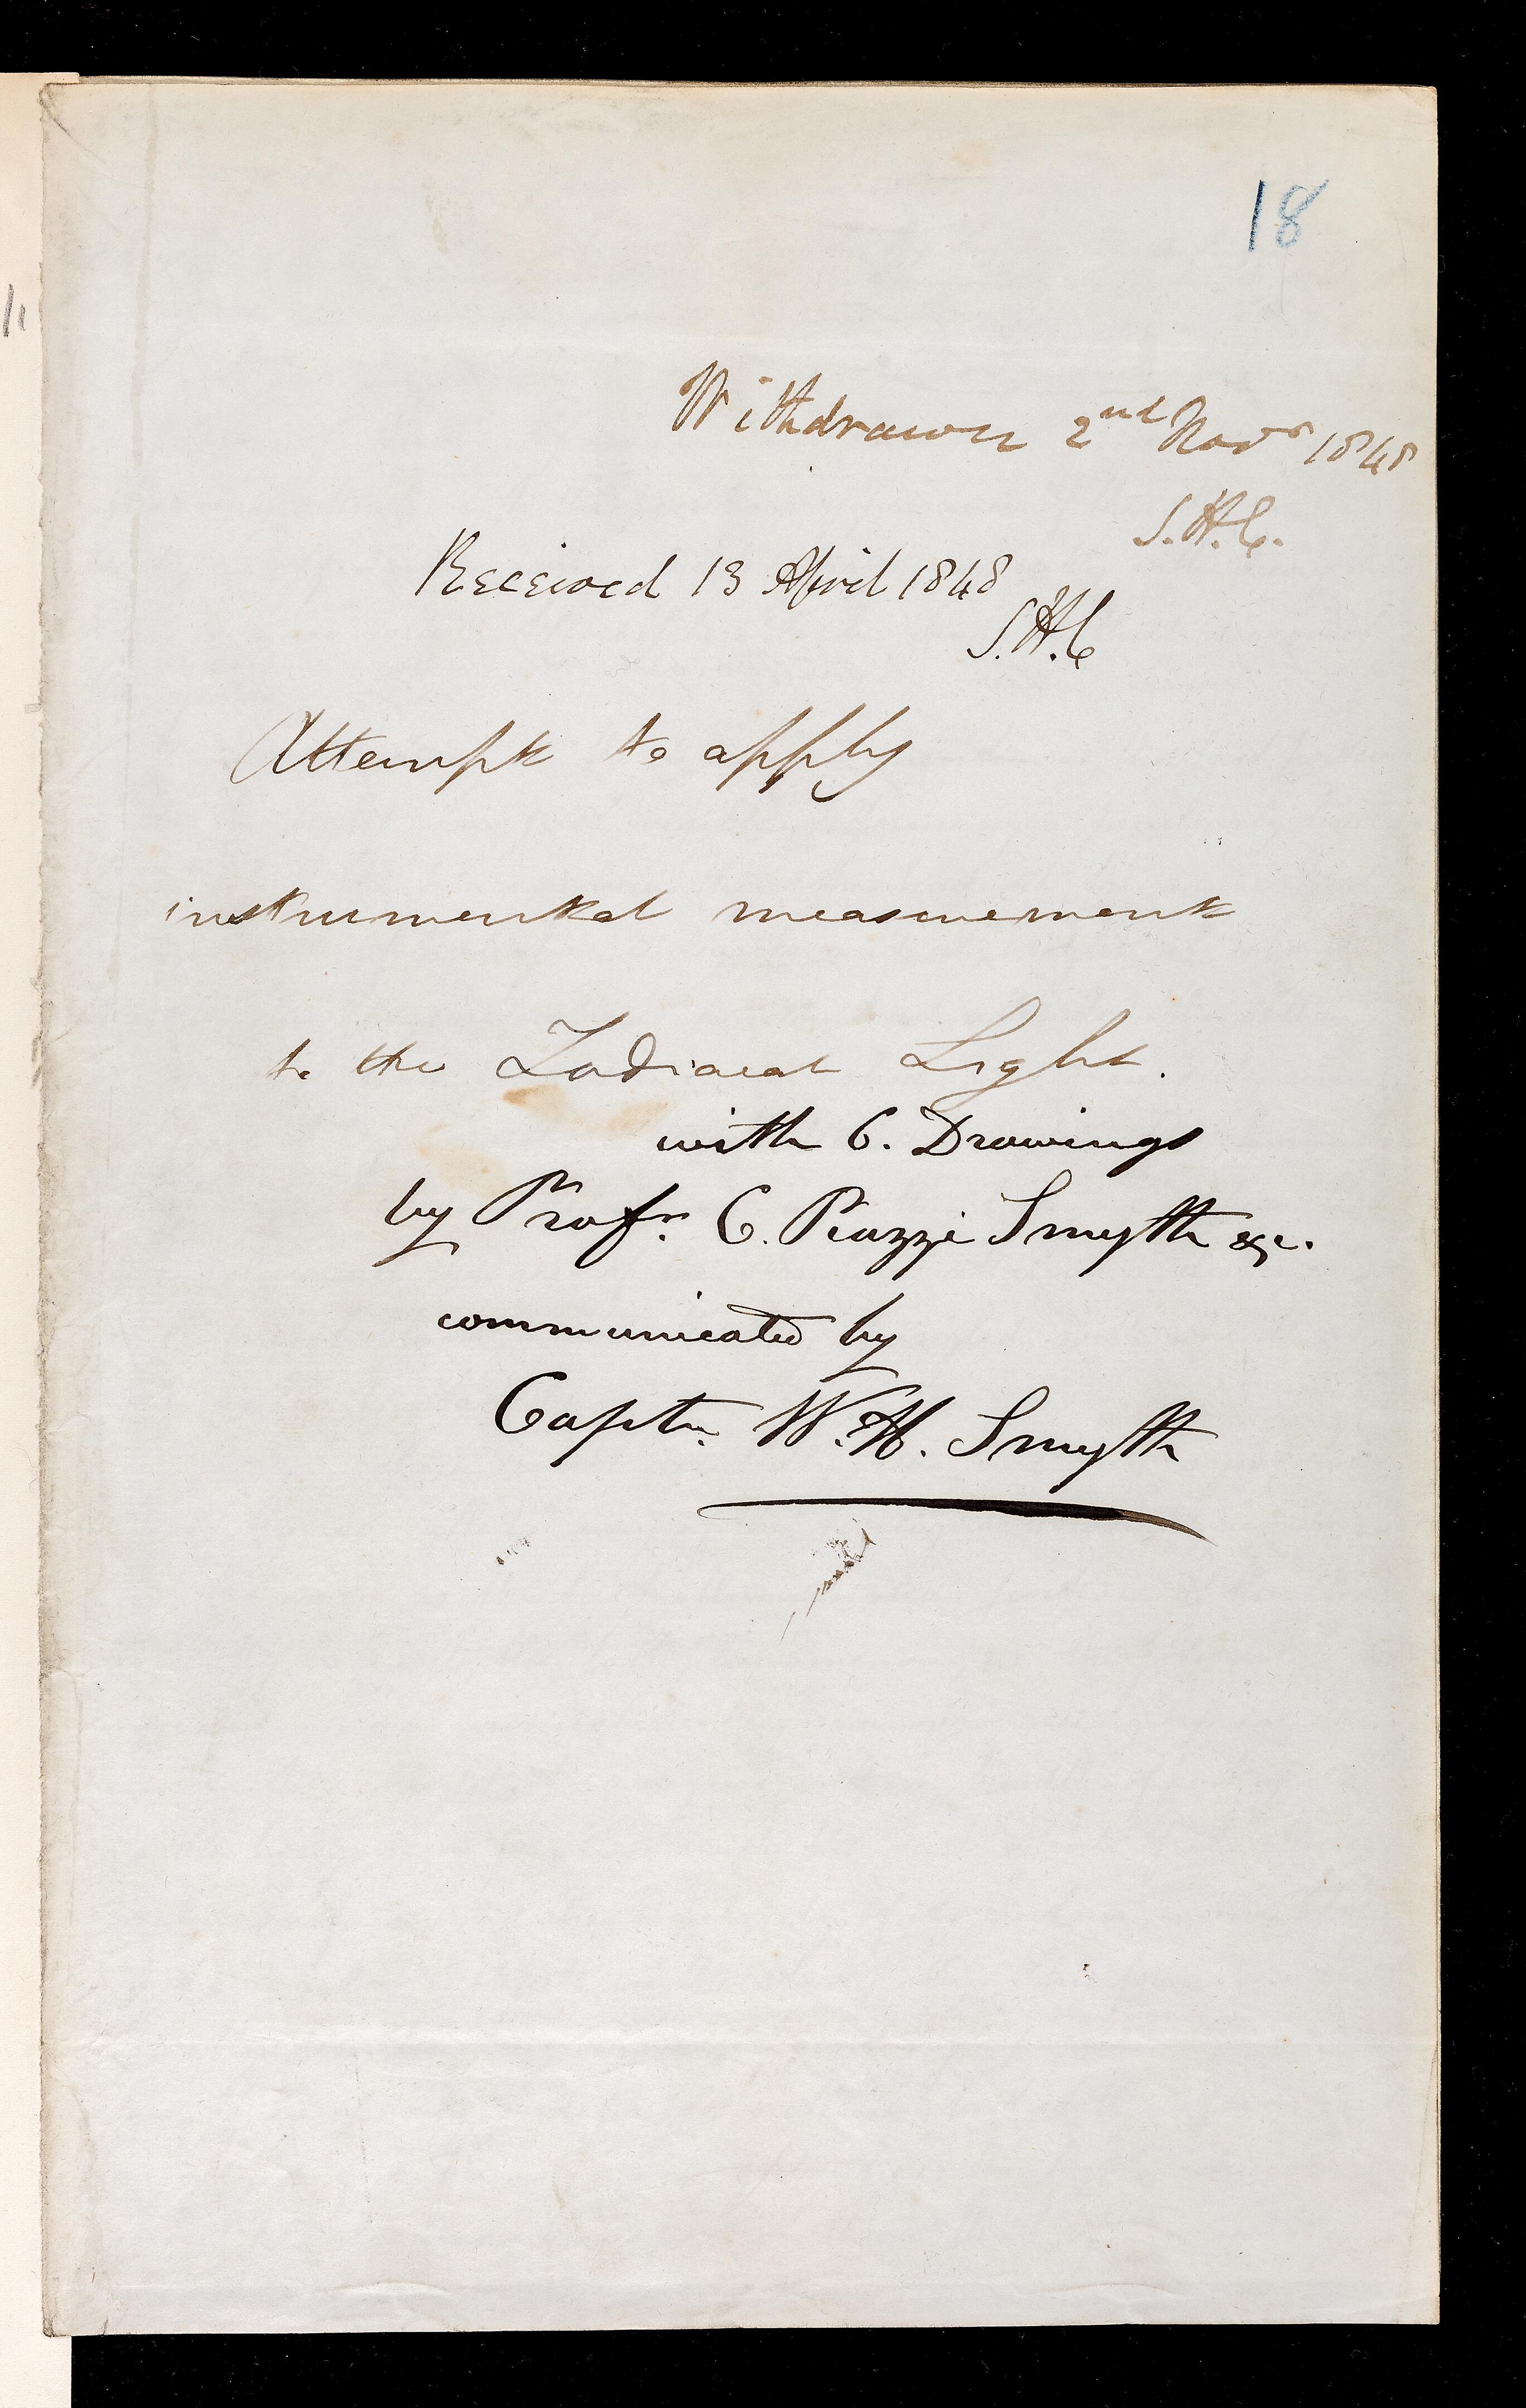 18
Withdrawn 2nd Novr 1848
S.H.C.
Received 13 April 1848
S.H.C
Attempt to apply
instrumental measurement
to the Zodiacal Light.
with 6. Drawings
by Profr. C. Piazzi Smyth &c.
communicated by
Captn. W.H. Smyth